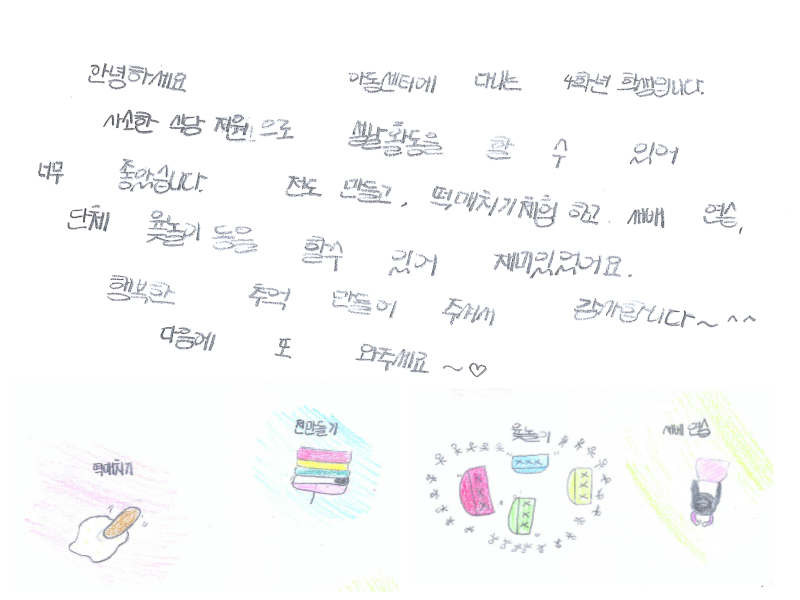 안녕하세요 아동센터에 다니는 4학년 학생입니다.
사소한 식당 지원으로 설날 활동을 할 수 있어
너무 좋았습니다. 전도 만들고, 떡메치기체험 하고. 세배 연습,
단체 윷놀이 등을 할수 있어 재미있었어요.
행복한 추억 만들어 주셔서 감사합니다~^^
다음에 또 와주세요~♡
떡메치기
전만들기
윷놀이
세배 연습